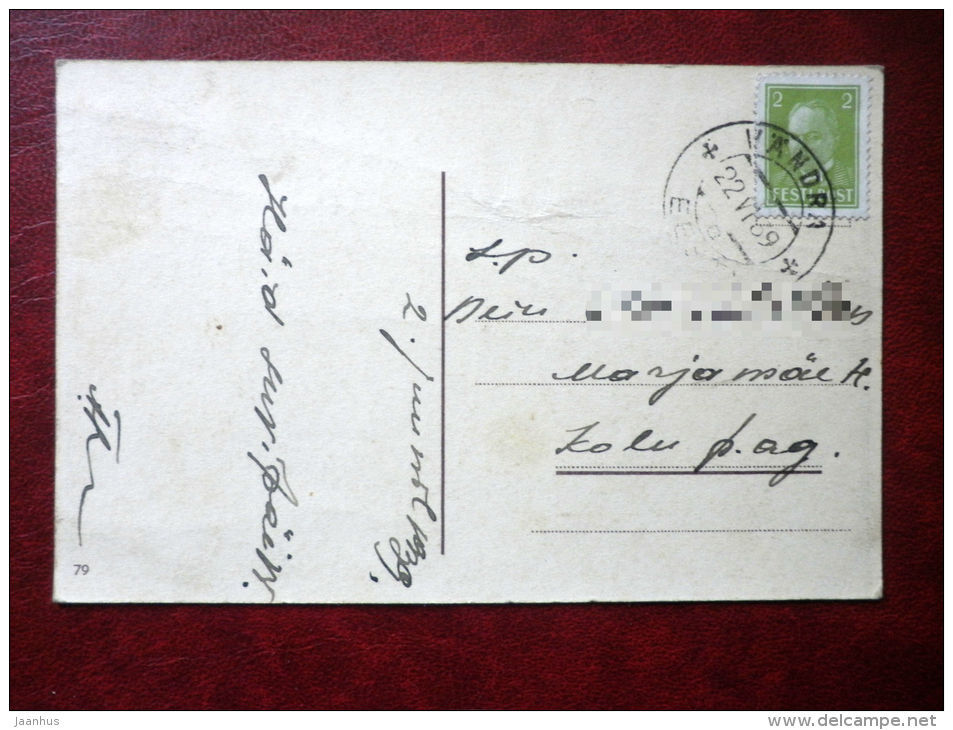 Hää.d suv. päiv.
2. junil 1939.
79
2 2
EESTI POST
VÄNDRA
22 VI 39
EESTI
L.p.
Marjamäe k.
Kolu p.ag.
Jaanhus
www.delcampe.net